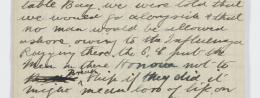 table Bay, we were told that
we would go alongside & that
no man would be allowed
ashore owing to the Influenza
Raging there, the O.C. put the
men on there Honour not to
leave Ship if they did it
might mean loss of life on